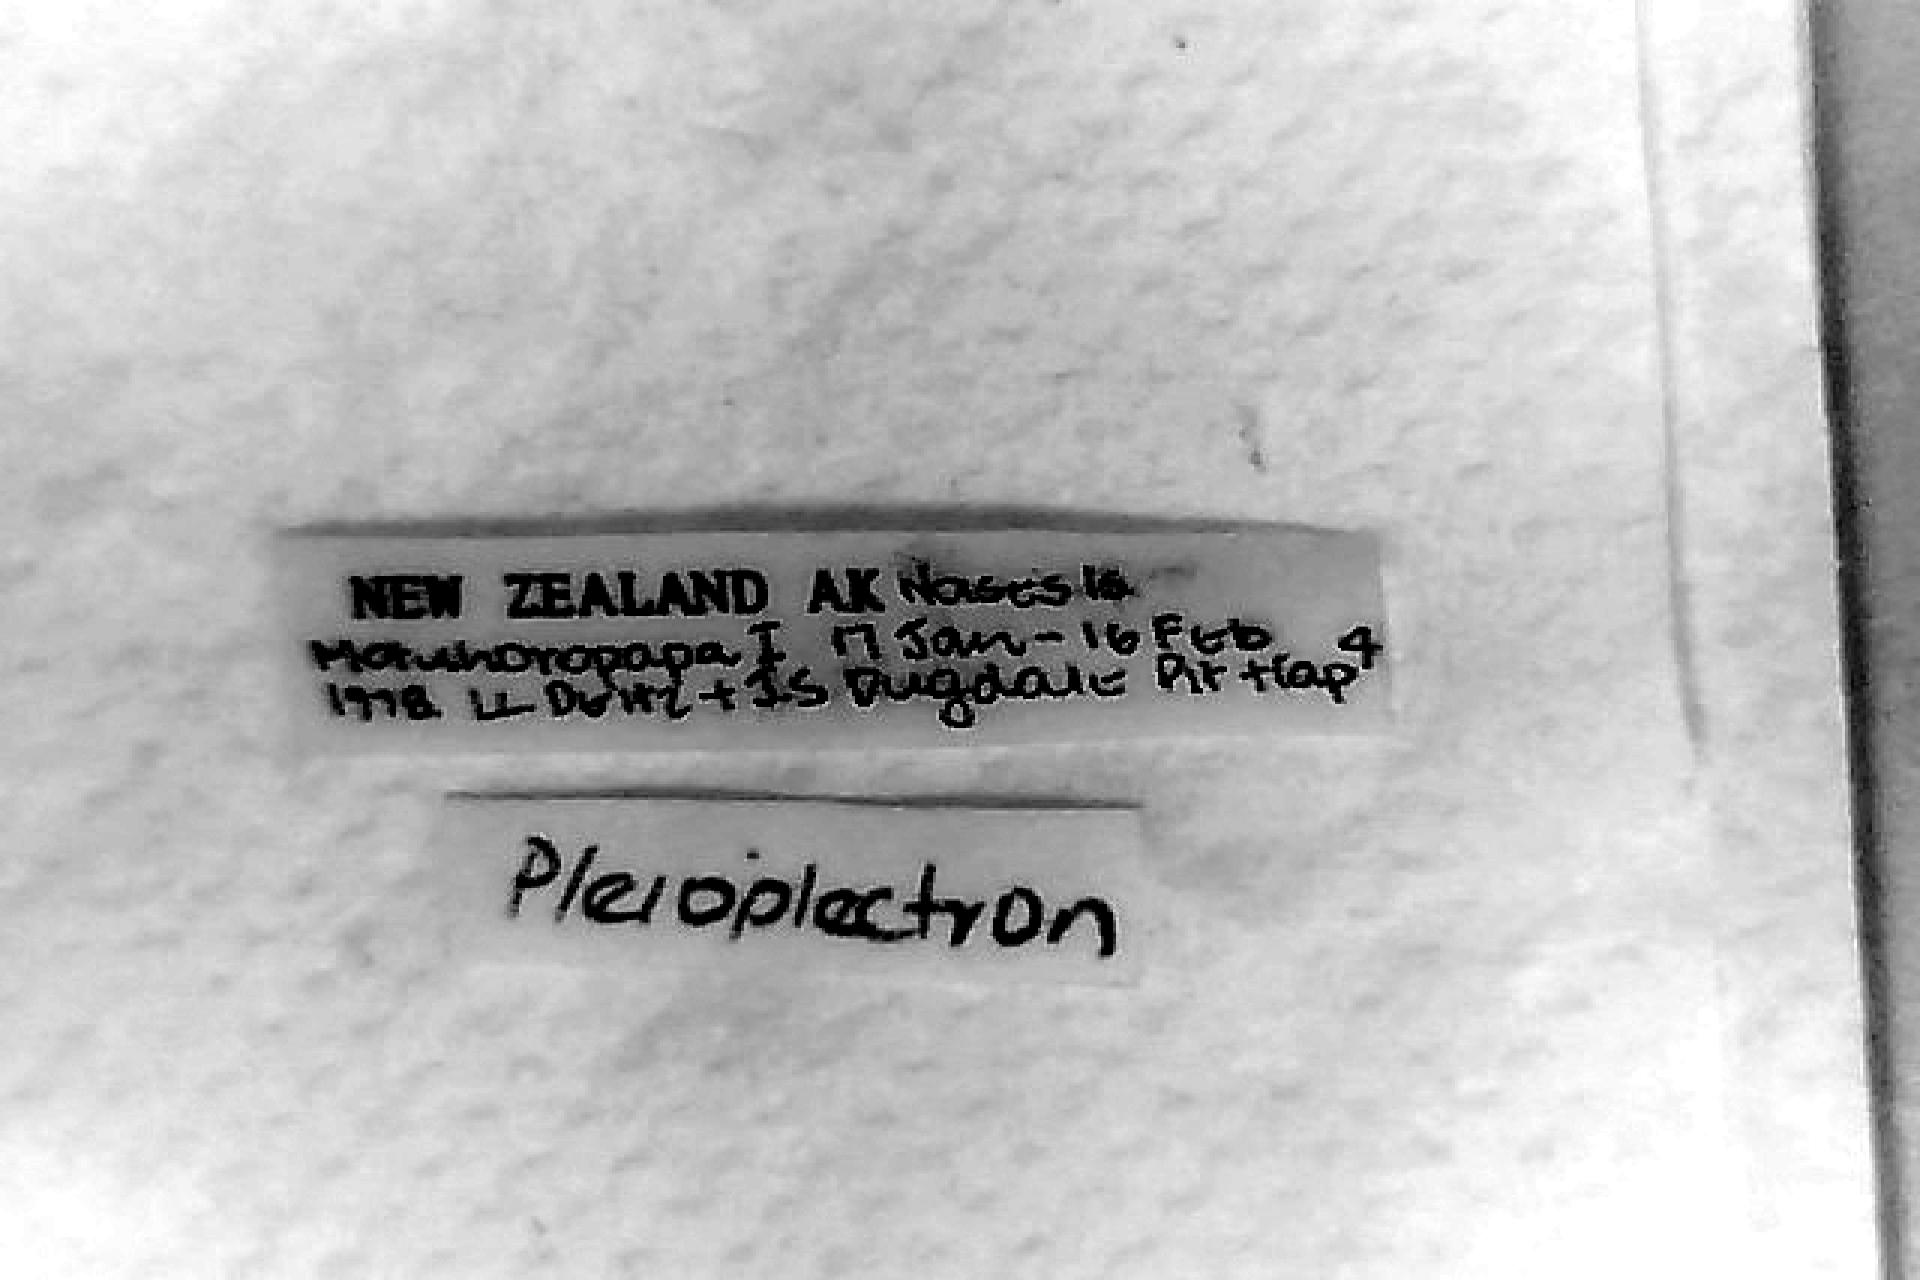 NEW ZEALAND AK Noises Is
Motuhoropapa I 17 Jan - 16 Feb
1978 LL Deitz + JS Dugdale Pit trap 4
Pleioplectron